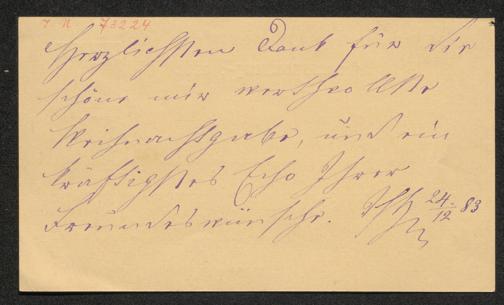 I. N. 73224
Herzlichsten Dank für die
schöne mir werthvollste
Weihnachtsgabe, und ein
kräftigstes Echo Ihrer
Freundeswünsche.
24./12 83